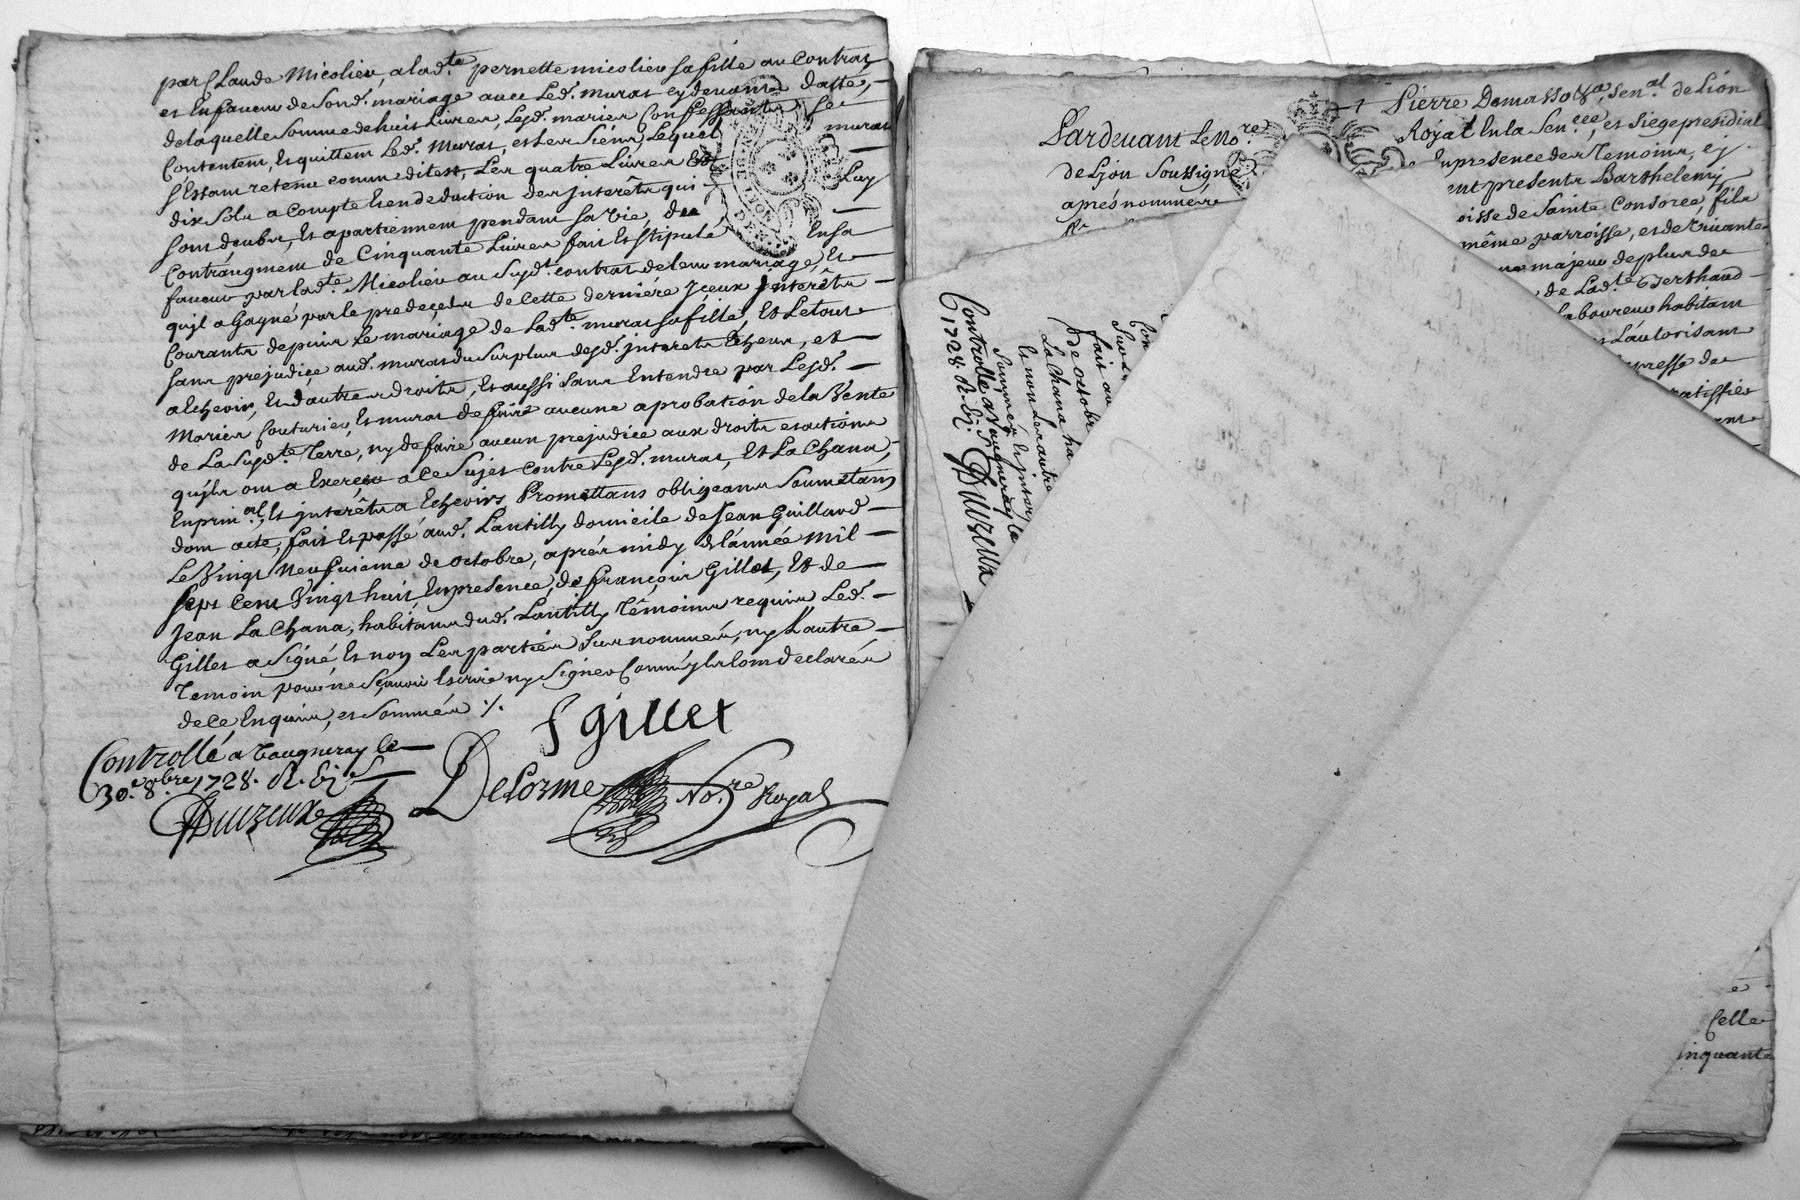 par Claude Micolier, a lad.te pernette micolier sa fille au Contrat
et En faveur de Sond. mariage avec Led. murat cy devant datté,
de laquelle Somme de huit Livres, Lesd. mariés Confessants Se
Contentent, Et quittent Led. Murat, et Les Siens, Lequel murat
S'Estant retenu comme dit est, Les quatre Livres Et Luy
dix Sols a Compte Et en deduction des Interêts qui
Sont deubs, Et apartiennent pendant Sa Vie, du
Contr'augment de Cinquante Livres fait Et Stipulé En Sa
faveur par lad.te Micolier au Susd.t contrat de leur mariage, Et
qu'jl a Gagné par le predeceds de Cette derniére Jceux Jnterêts
Courants depuis Le mariage de Lad.te murat Sa fille, Et Le tout
Sans prejudice aud. murat du Surplus desd. jnterets Echeus, et
a Echeoir, Et d'autres droits, Et aussi Sans Entendre par Lesd.
Mariés Couturier Et murat de faire aucune aprobation de la Vente
de La Susd.te Terre, ny de faire aucun prejudice aux droits et actions
qu'jls ont a Exercer a Ce Sujet contre Lesd. murat, Et La Chana,
En prin.al, Et jnterêts a Echeoirs Promettans obligeans Soumettans
dont acte, fait Et passé aud. Lantilly domicile de Jean Guillard
Le Vingt Neufvieme de octobre, aprés midy de l'année mil
Sept Cent Vingt huit, En presence, de françois Gillet, Et de
Jean La Chana, habitants dud. Lantilly Témoins requis Led.
Gillet a Signé, Et non Les parties Sus nommées, ny L'autre
Temoin pour ne Sçavoir Escrire ny Signer Comm'jls l'ont declarés
de Ce Enquis, et Sommés ./.
f gillet
Controllé a Vaugneray le
30.e 8.bre 1728.
Delorme No.re Royal
Pardevant Le No.re
de Lyon Soussigné
aprés nommés
Royal En la Sen.cée, et Siege presidial
En presence des Temoins, cy
present Barthelemy
oisse de Sainte Consorce, fils
même parroisse, et de Vivante
majeur de plus de
de Lad.te Berthaud
Laboureur habitant
L'autorisant
xpresse de
ratiffier
Controllé a Vaugneray le
1728.
fait au
de octobre
La Chana ha
Et non Les autre
Sommés
Celle
inquante